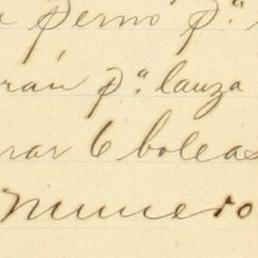 perno pª
rán pª lanza
rar 6 boleas
numero